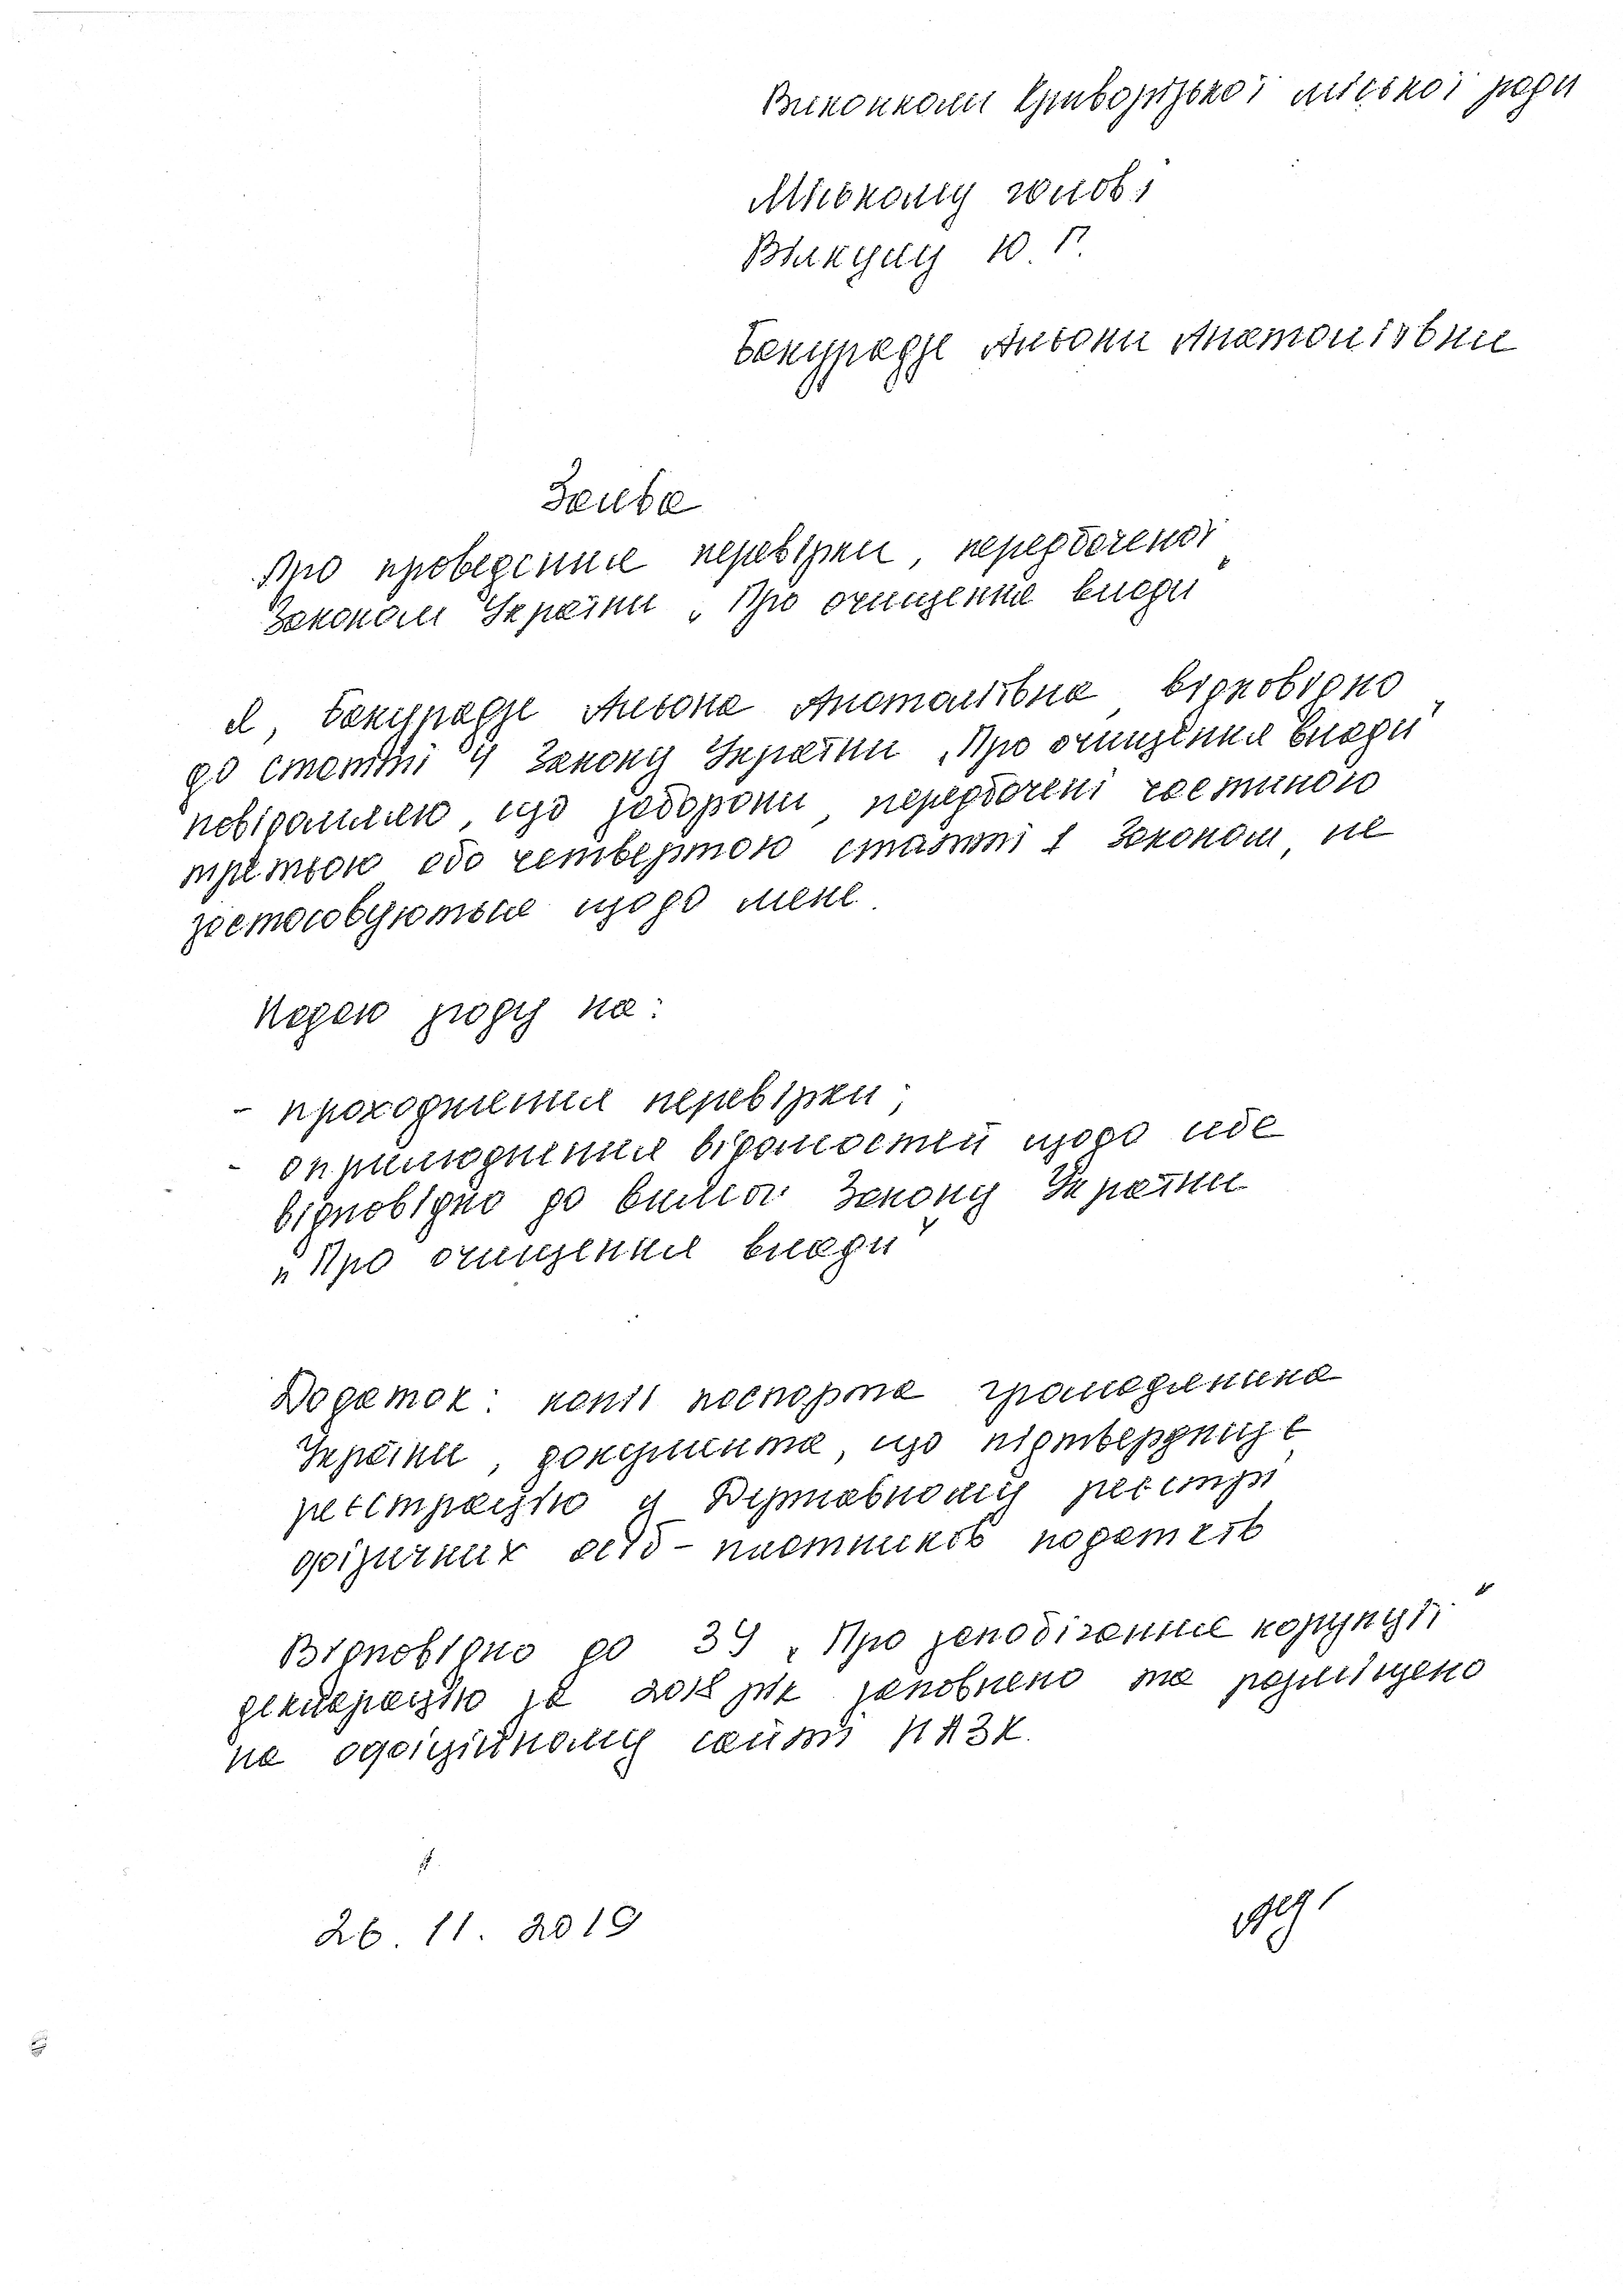 Виконком Криворізької міської ради
Міському голові
Вілкулу Ю.Г.
Бакурадзе Альони Анатоліївни
Заява
Про проведення перевірки, передбаченої
Законом України „Про очищення влади"
Я, Бакурадзе Альона Анатоліївна, відповідно
до статті 4 Закону України „Про очищення влади"
повідомляю, що заборони, передбачені частиною
третьою або четвертою статті 1 Законом, не
застосовуються щодо мене.
Надаю згоду на:
- проходження перевірки;
- оприлюднення відомостей щодо себе
відповідно до вимог Закону України
„Про очищення влади"
Додаток: копії паспорта громадянина
України, документа, що підтверджує
реєстрацію у Державному реєстрі
фізичних осіб - платників податків
Відповідно до ЗУ „Про запобігання корупції"
декларацію за 2018 рік заповнено та розміщено
на офіційному сайті НАЗК.
26.11.2019